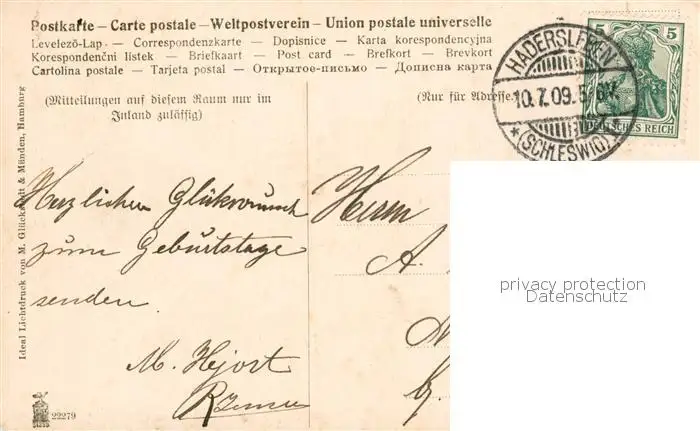 Postkarte — Carte postale — Weltpostverein — Union postale universelle
Levelező-Lap — Correspondenzkarte — Dopisnice — Karta korespondencyjna
Korespondenční lístek — Briefkaart — Post card — Brefkort — Brevkort
Cartolina postale — Tarjeta postal — Открытое-письмо — Дописна карта
(Mitteilungen auf diesem Raum nur im
Inland zulässig)
(Nur für Adresse.
HADERSLEBEN
10.7.09.5
* (SCHLESWIG)
5
DEUTSCHES REICH
Herzlichen Glükwunsch
zum Geburtstage
senden.
M. Hjort
Herrn
A.
privacy protection
Datenschutz
Ideal Lichtdruck von M. Glückstadt & Münden, Hamburg
22279